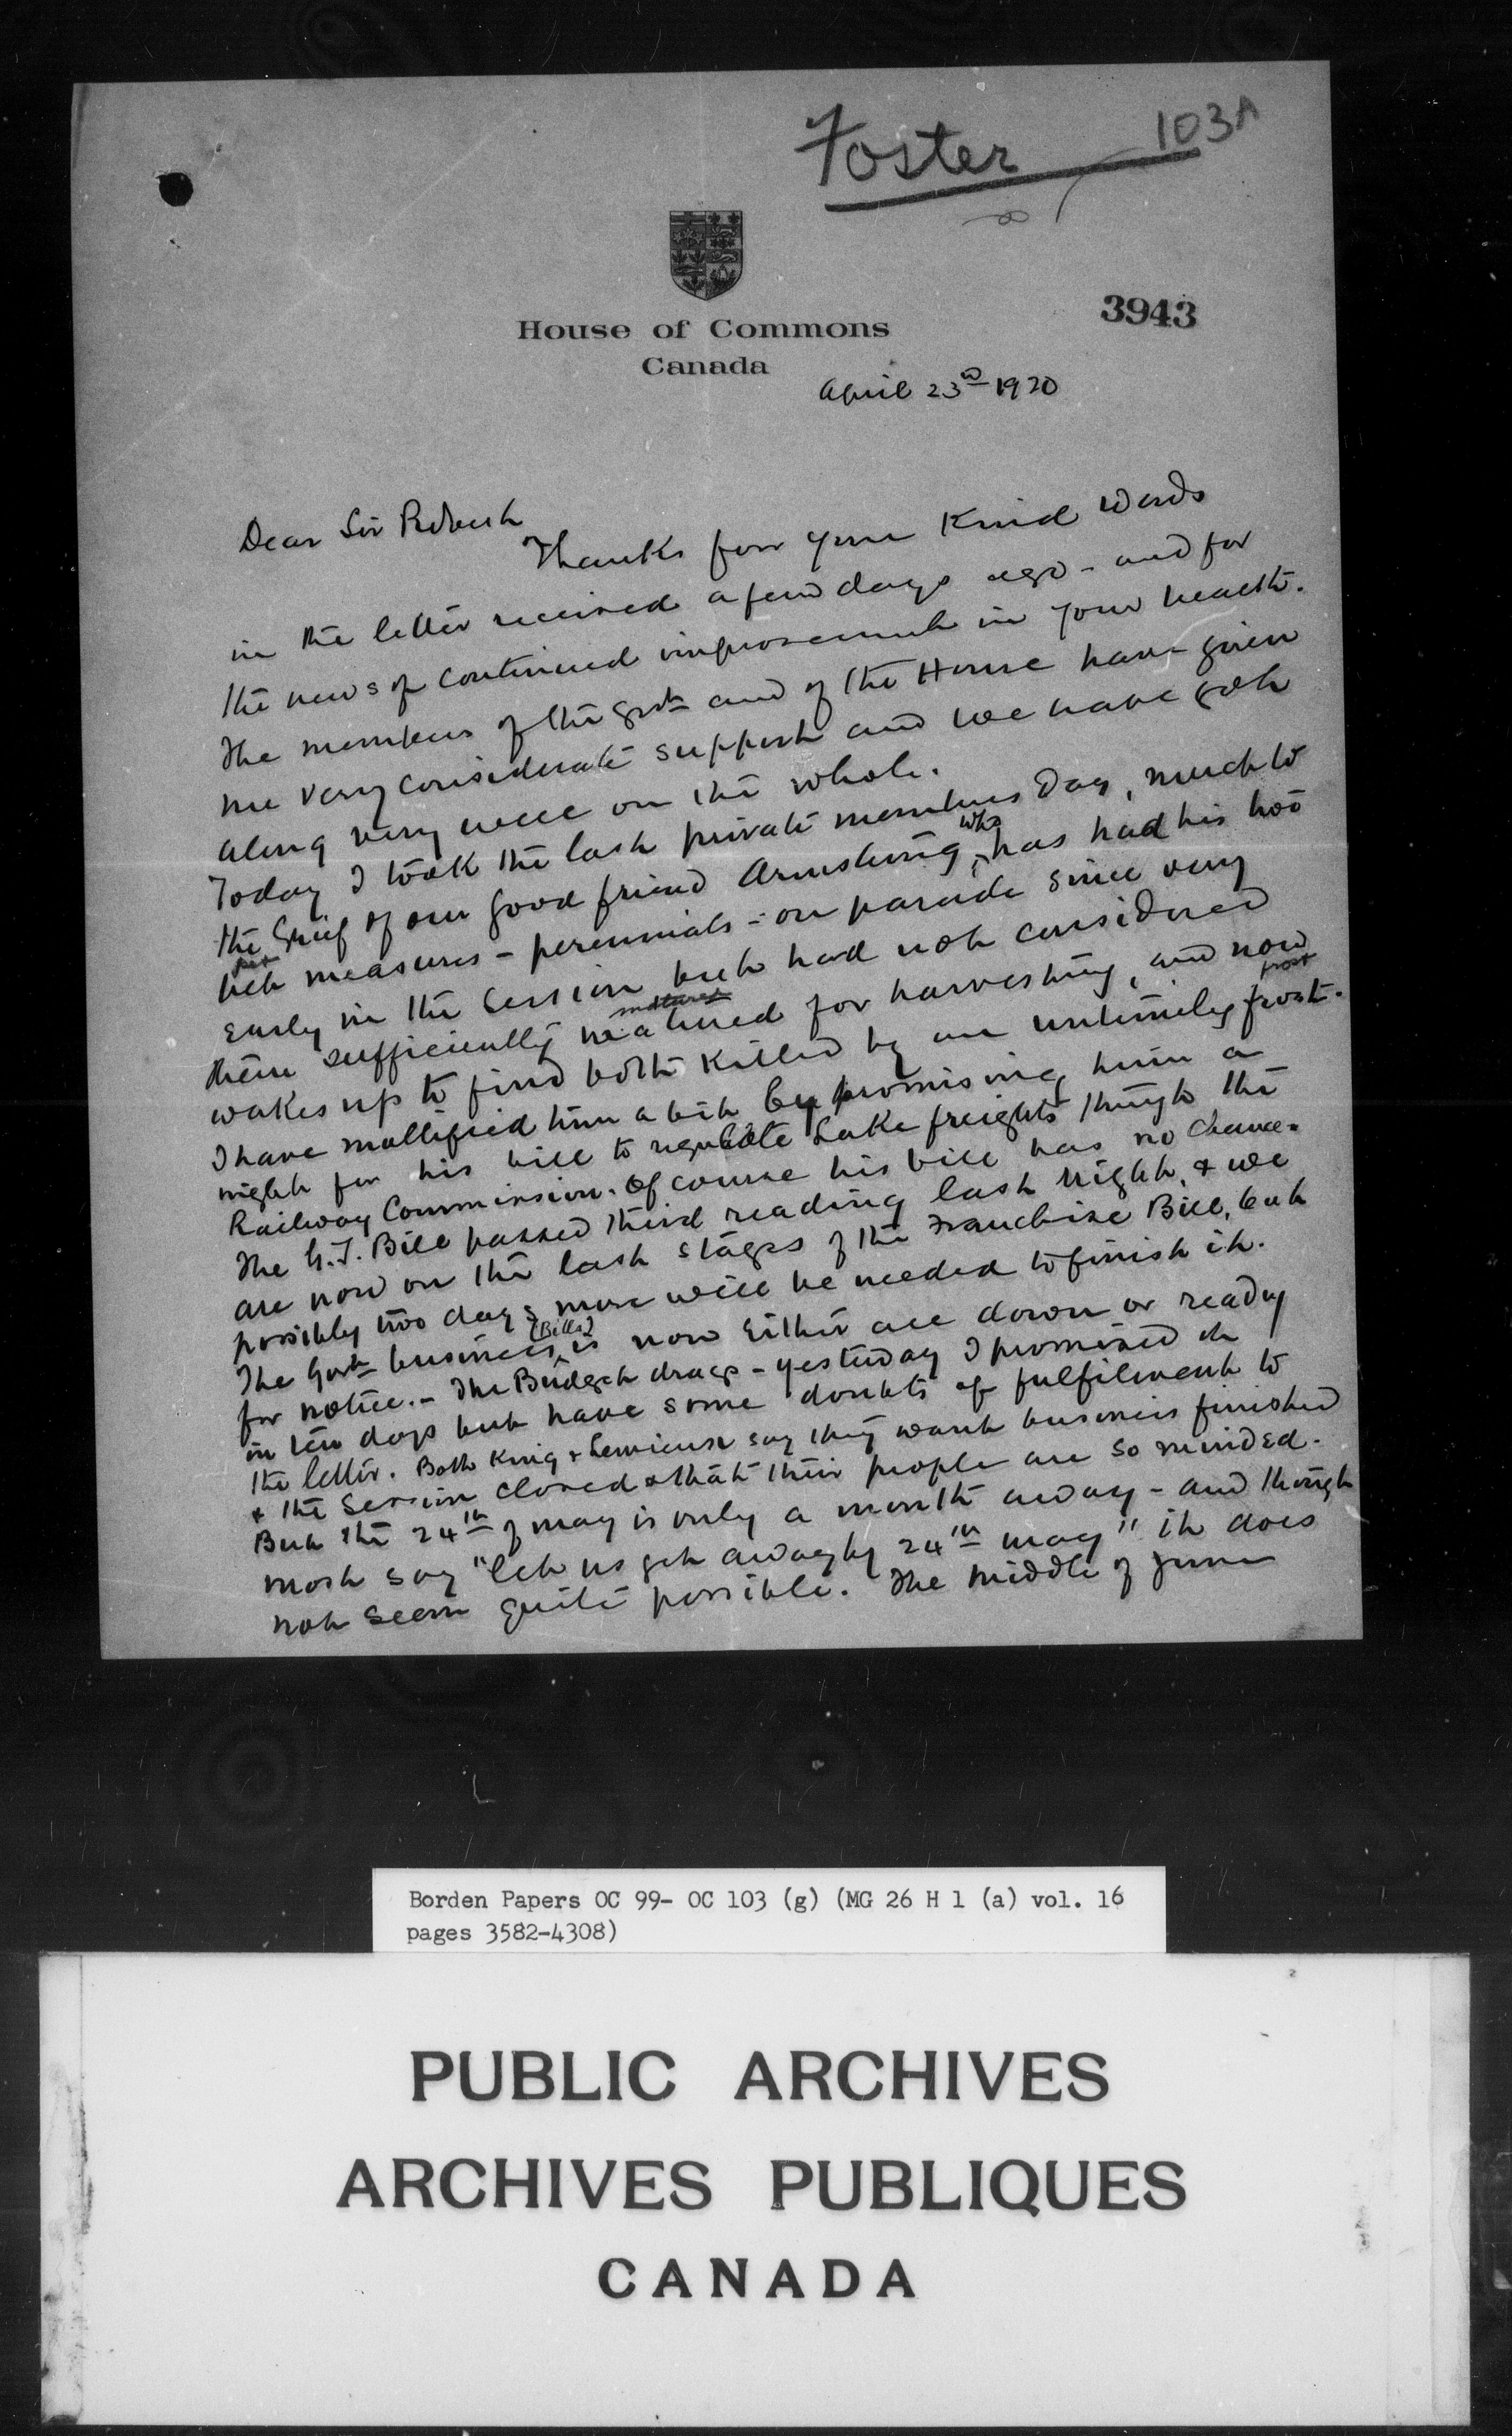 Foster 103A
House of Commons
Canada
3943
April 23rd 1920
Dear Sir Robert
Thanks for your kind words
in the letter received a few days ago - and for
the news of continued improvement in your health.
The members of the Govt and of the House have given
me very considerate support and we have got
along very well on the whole.
Today I took the last private members Day, much to
the grief of our good friend Armstrong, who has had his two
pet
pet measures - perennials - on parade since very
early in the Session but had not considered
them sufficiently matured for harvesting, and now
matured
wakes up to find both killed by an untimely frost.
frost
I have mollified him a bit by promising him a
night for his bill to regulate Lake freights through the
Railway Commission. Of course his bill has no chance.
The G.T. Bill passed third reading last night, & we
are now on the last stages of the Franchise Bill, but
possibly two days more will be needed to finish it.
The Govt business (Bills) is now either all down or ready
for notice. - The Budget drags - yesterday I promised it
in ten days but have some doubts of fulfilment to
the letter. Both King & Lemieux say they want business finished
& the Session closed & that their people are so minded.
But the 24th of May is only a month away - and though
most say "let us get away by 24th May" it does
not seem quite possible. The middle of June
Borden Papers OC 99- OC 103 (g) (MG 26 H 1 (a) vol. 16
pages 3582-4308)
PUBLIC ARCHIVES
ARCHIVES PUBLIQUES
CANADA